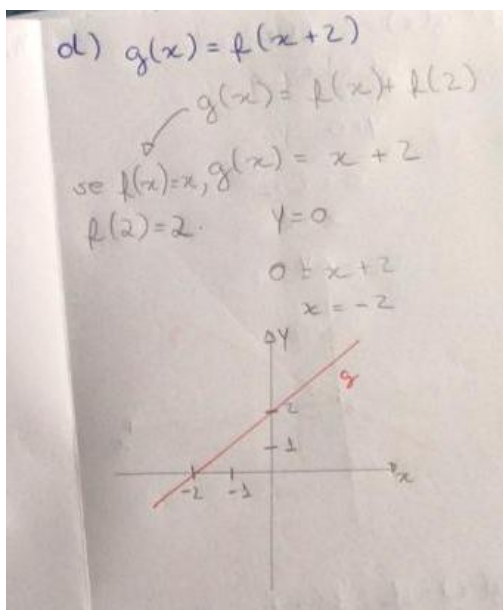 d) g(x) = f(x+2)
g(x) = f(x)+ f(2)
se f(x)=x, g(x) = x + 2
f(2)=2. y=0
0 = x+2
x = -2
y
g
2
1
-2 -1 x